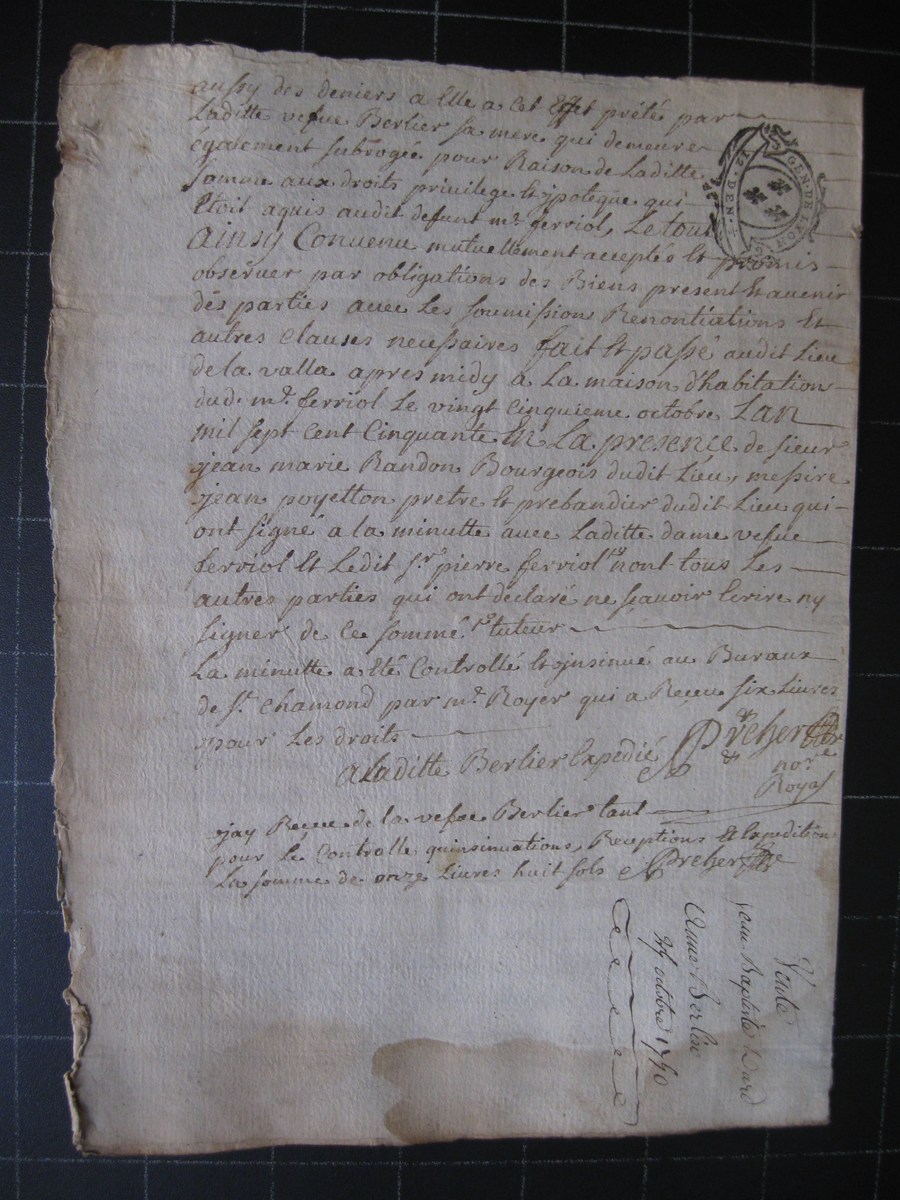 aussy des deniers a Elle a cet Effet prété par
Laditte vefue Berlier sa mere qui demeure
également subrogée pour Raison de Laditte
somme aux droits privilege Et ypoteque qui
Etoit aquis audit defunt mr. ferriol, Le tout
Ainsy Convenu mutuellement acceptés Et promis
observer par obligations des Biens present Et avenir
des parties avec Les soumission Renontiations Et
autres Clauses necessaires fait Et passé audit Lieu
de la valla apres midy a La maison d'habitation
dud. mr. ferriol Le vingt Cinquieme octobre Lan
mil sept cent Cinquante En La presence de sieur
jean marie Randon Bourgeois dudit Lieu, messire
jean poyetton pretre Et prebandier dudit Lieu qui
ont signé a la minutte avec Laditte dame vefue
ferriol Et Ledit sr. pierre ferriol non tous Les
autres parties qui ont déclaré ne sçavoir Ecrire ny
signer de Ce sommé tuteur
La minutte a Eté Controllé Et jnsinué au Buraux
de St. Chamond par mr. Royer qui a Receu six Livres
pour Les droits
a Laditte Berlier Expedié
nore
Royal
jay Receu de la vefue Berlier tant
pour Le Controlle quinsinuations, Receptions Et Expedition
La somme de onze Livres huit sols
GEN. DE LYON
DEN.
Vente
Jean Baptiste
Berlier
octobre 1750